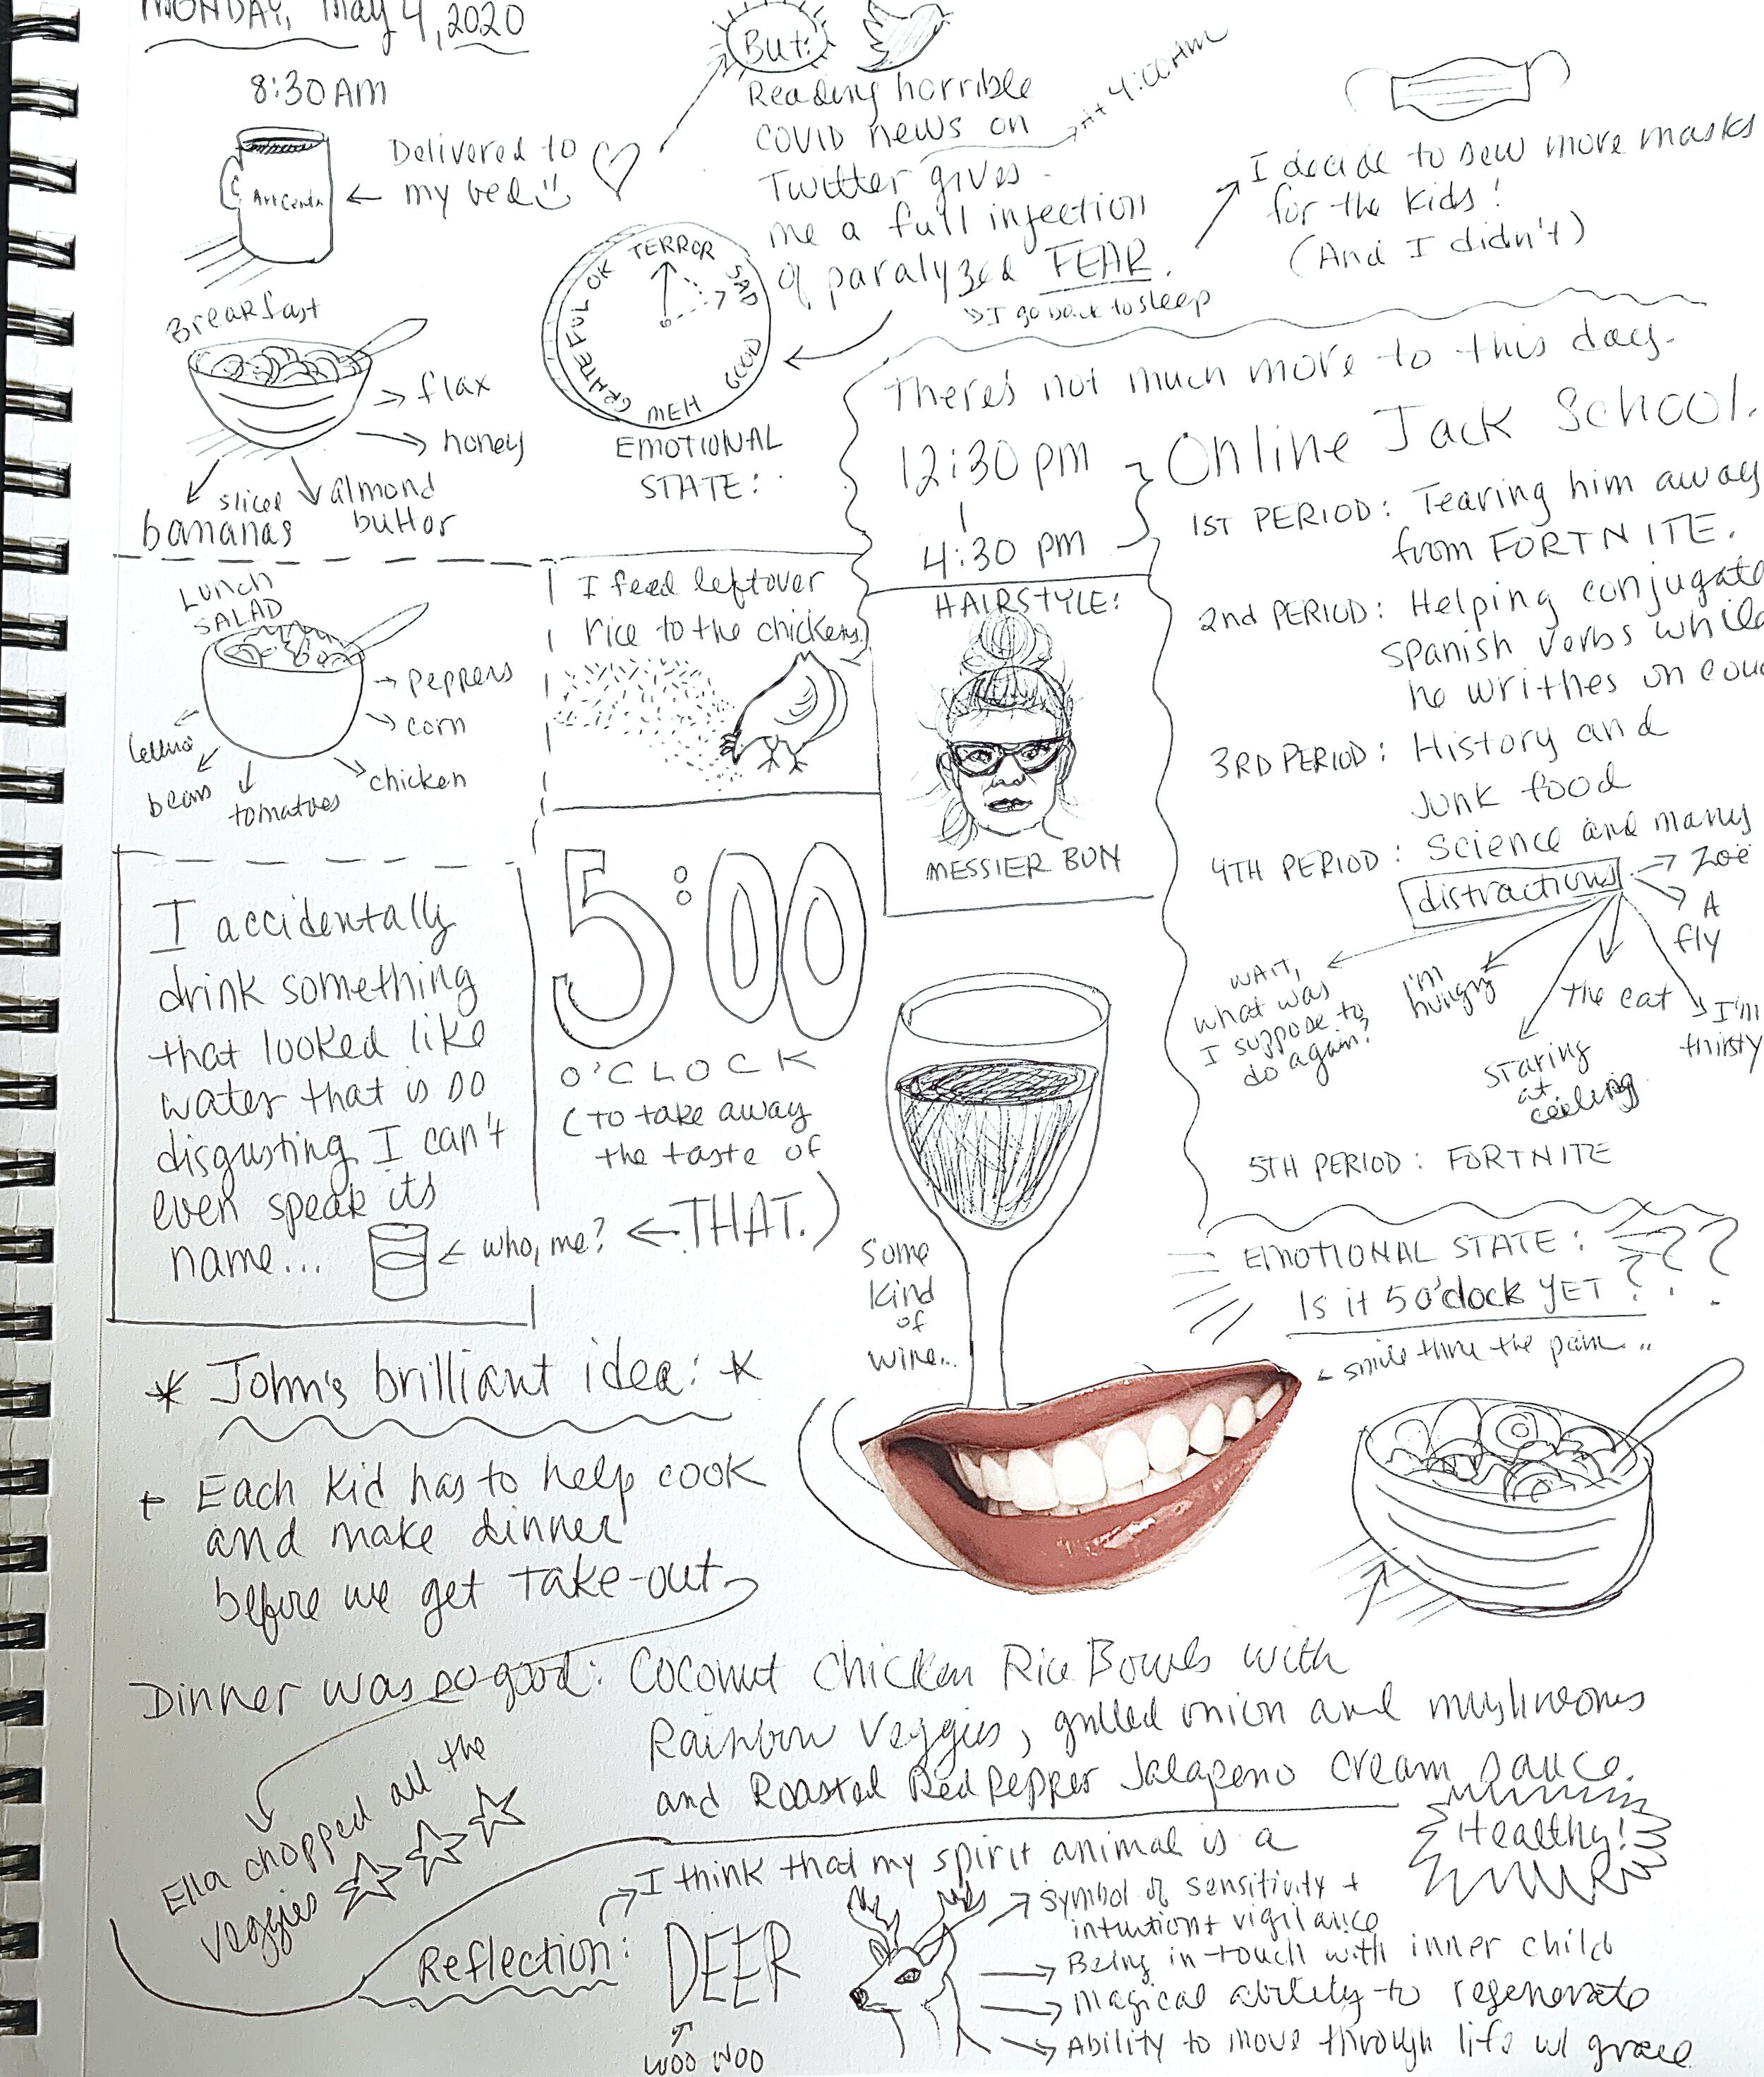 MONDAY, May 4, 2020
8:30 AM
ArtCenter
Delivered to
my bed
But:
Reading horrible
COVID news on
Twitter gives
me a full injection
of paralyzed FEAR.
At 4:00 AM
I go back to sleep
I decide to sew more masks
for the kids!
(And I didn't)
Breakfast
flax
honey
almond
butter
sliced
bananas
TERROR
SAD
GOOD
MEH
GRATEFUL
OK
EMOTIONAL
STATE:
There's not much more to this day.
12:30 pm
4:30 pm
Online Jack School.
1ST PERIOD: Tearing him away
from FORTNITE.
2nd PERIOD: Helping conjugate
Spanish verbs while
he writhes on
3RD PERIOD: History and
Junk food
4TH PERIOD: Science and many
distractions
Zoë
A
fly
I'm
thirsty
The cat
Staring
at
ceiling
I'm
hungry
WAIT,
what was
I suppose to
do again?
5TH PERIOD: FORTNITE
LUNCH
SALAD
peppers
corn
chicken
tomatoes
beans
lettuce
I feed leftover
rice to the chickens
HAIRSTYLE:
MESSIER BUN
I accidentally
drink something
that looked like
water that is so
disgusting I can't
even speak its
name...
who, me?
5:00
O'CLOCK
(To take away
the taste of
THAT.)
Some
kind
of
wine...
EMOTIONAL STATE:
Is it 5 o'clock YET ???
smile thru the pain..
* John's brilliant idea: *
+ Each kid has to help cook
and make dinner
before we get take-out
Dinner was so good: Coconut Chicken Rice Bowls with
Rainbow Veggies, grilled onion and mushrooms
and Roasted Red Pepper Jalapeno cream sauce.
Healthy!
Ella chopped all the
veggies
Reflection:
I think that my spirit animal is a
DEER
WOO WOO
symbol of sensitivity +
intuition + vigilance
Being in-touch with inner child
magical ability to regenerate
Ability to move through life w/ grace